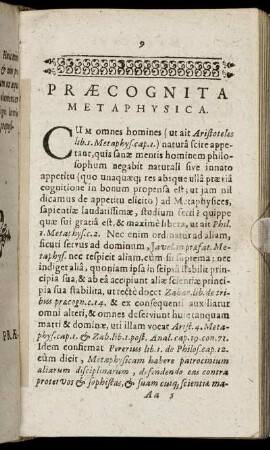 9
PRÆCOGNITA
METAPHYSICA.
CUM omnes homines (ut ait Aristoteles
lib.1. Metaphys. cap.1.) naturâ scire appe-
tant, quis sanæ mentis hominem philo-
sophum negabit naturali sive innato
appetitu (quo unaquæq; res absque ullâ præviâ
cognitione in bonum propensa est, ut jam nil
dicamus de appetitu elicito) ad Metaphysices,
sapientiæ laudatissimæ, studium ferri? quippe
quæ sui gratiâ est, & maximè libera, ut ait Phil.
1. Metaphys. c.2. Nec enim ordinatur ad aliam,
sicuti servus ad dominum, Javel. in præfat. Me-
taphys. nec respicit aliam, cùm sit suprema: nec
indiget aliâ, quoniam ipsa in seipsâ stabilit princi-
pia sua, & ab eâ accipiunt aliæ scientiæ princi-
pia sua stabilita, ut rectè docet Zabar. lib. de tri-
bus præcogn. c.14. & ex consequenti auxiliatur
omni alteri, & omnes deserviunt huic tanquam
matri & dominæ, uti illam vocat Arist. 4. Meta-
phys. cap.1. & Zab. lib.1. post. Anal. cap.19. con.71.
Idem confirmat Pererius lib.1. de Philos. cap.12.
cùm dicit, Metaphysicam habere patrocinium
aliarum disciplinarum, defendendo eas contra
protervos & sophistas, & suam cuiq; scientiæ ma-
Aa 5